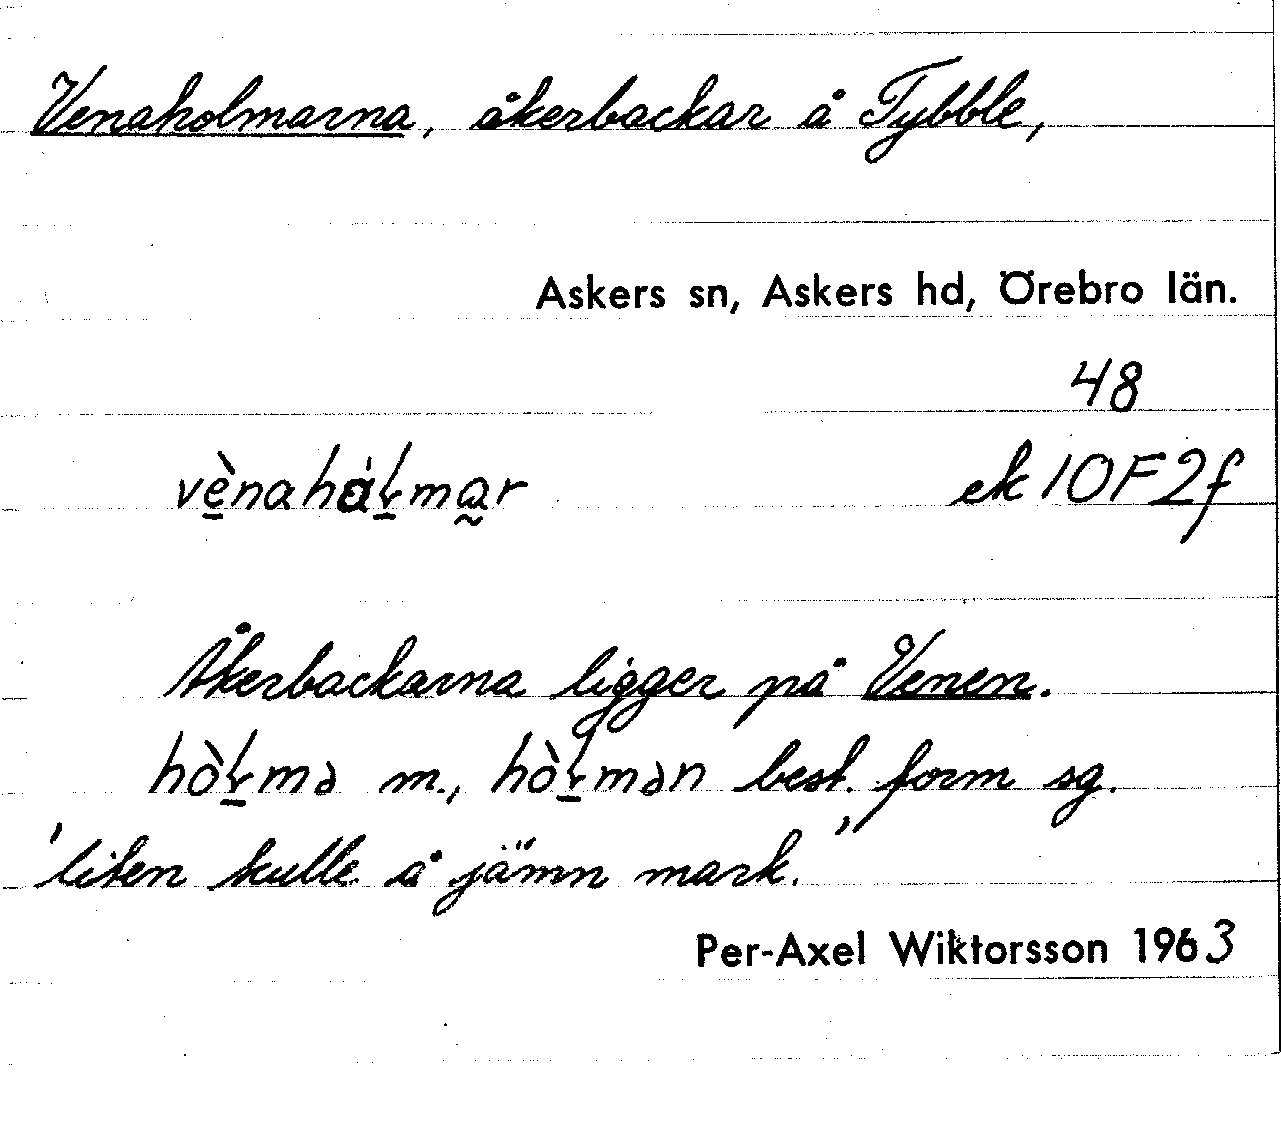 Venaholmarna, åkerbackar å Tybble,
Askers sn, Askers hd, Örebro län.
48
vè̱nahȧɫ̱ma̰r ek 10F2f
Åkerbackarna ligger på Venen.
hòɫ̱mə m., hòɫ̱mən best. form sg.
'liten kulle å jämn mark.'
Per-Axel Wiktorsson 1963